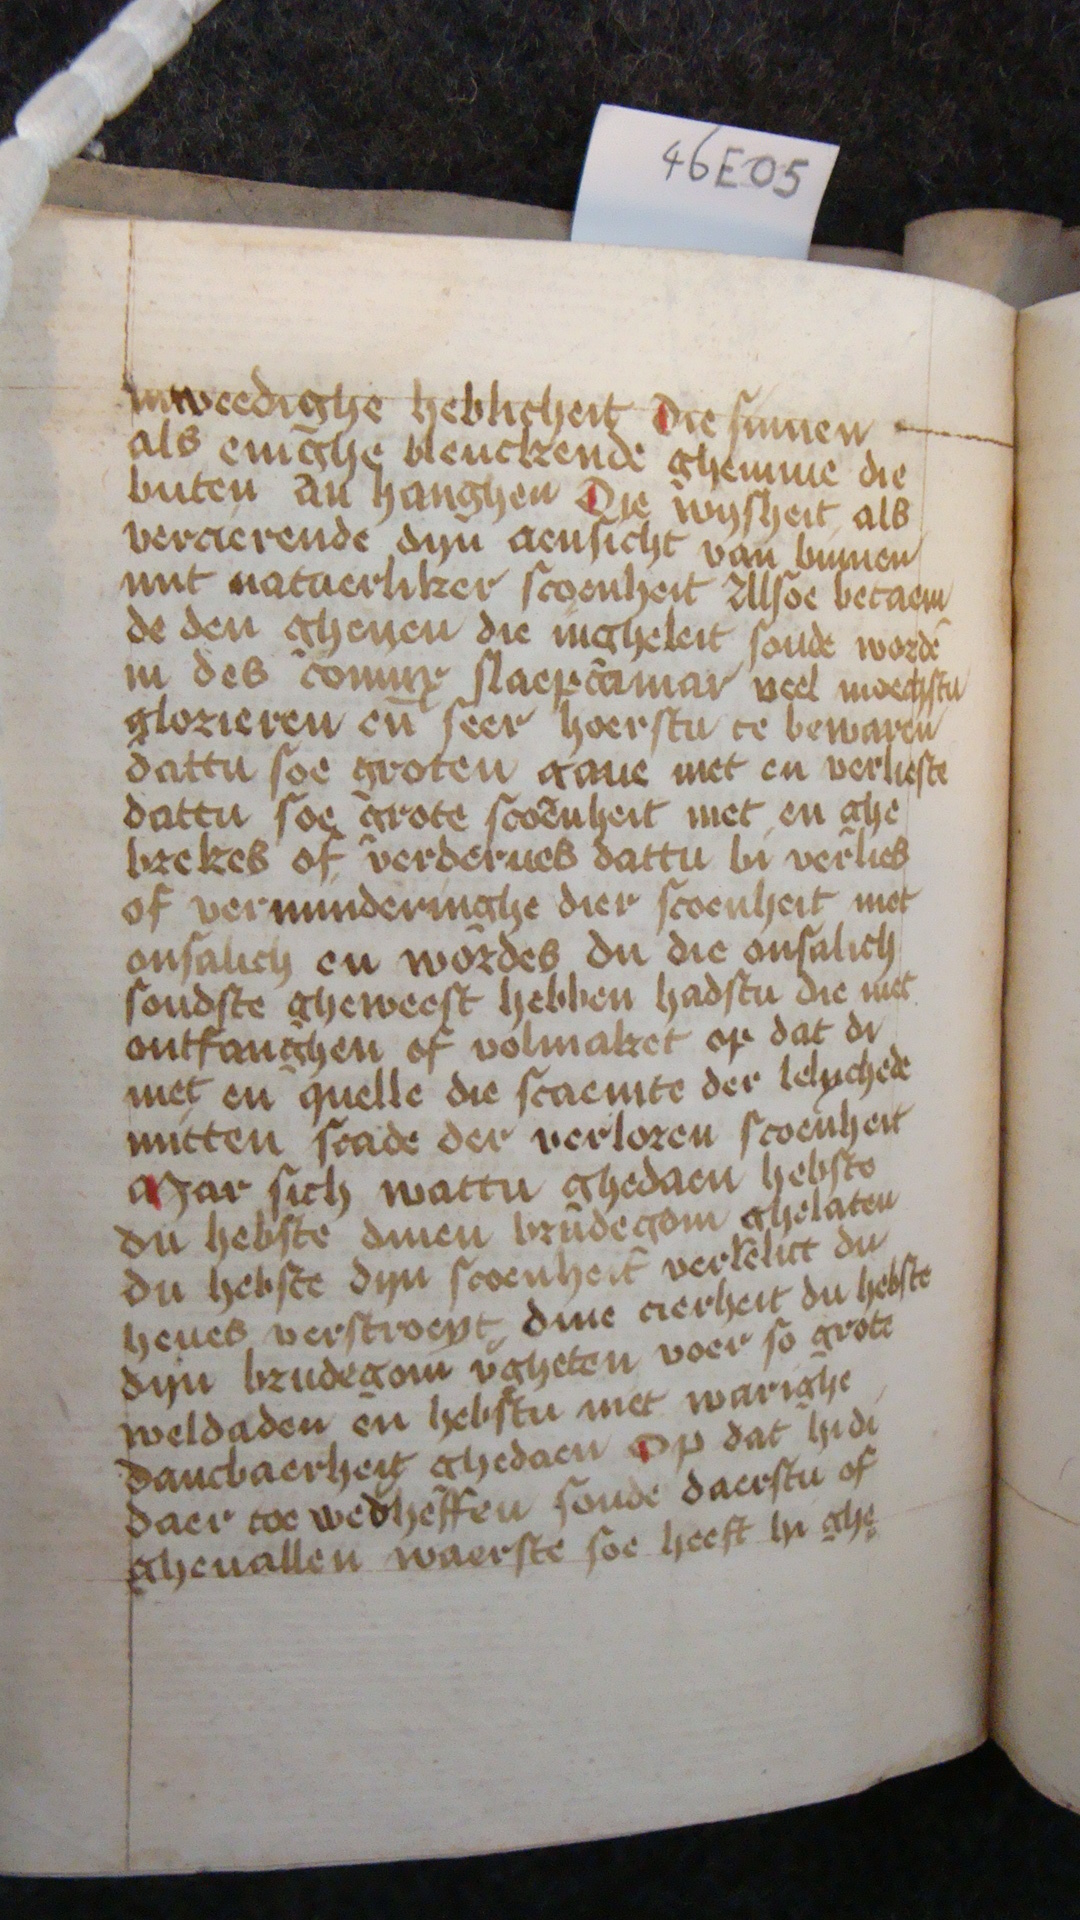 46E05
inweedighe heblicheit Die sinnen
als enighe blenckende ghemme die
buten an hanghen Die wysheit als
vercierende dyn aensicht van binnen
mit natuerliker scoenheit Alsoe betaem
de den ghenen die ingheleit soude wordē
in des conincx slaepcamar veel moechstu
glorieren en̄ seer hoerstu te bewaren
dattu soe groten gaue niet en verlieste
dattu soe grote scoenheit niet en ghe
brekes of verderues dattu bi verlies
of verminderinghe dier scoenheit niet
onsalich en wordes du die onsalich
soudste gheweest hebben hadstu die niet
ontfanghen of volmaket op dat di
niet en quelle die scaemte der lelychede
mitten scade der verloren scoenheit
Mar sich wattu ghedaen hebste
du hebste dinen brudegom ghelaten
du hebste dyn scoenheit verkelict du
heues verstroeyt dine cierheit du hebste
dyn brudegom v̄gheten voer so grote
weldaden en̄ hebstu niet warighe
dancbaerheit ghedaen Op dat hi di
daer toe wedheffen soude daerstu of
gheuallen waerste soe heeft hi ghe